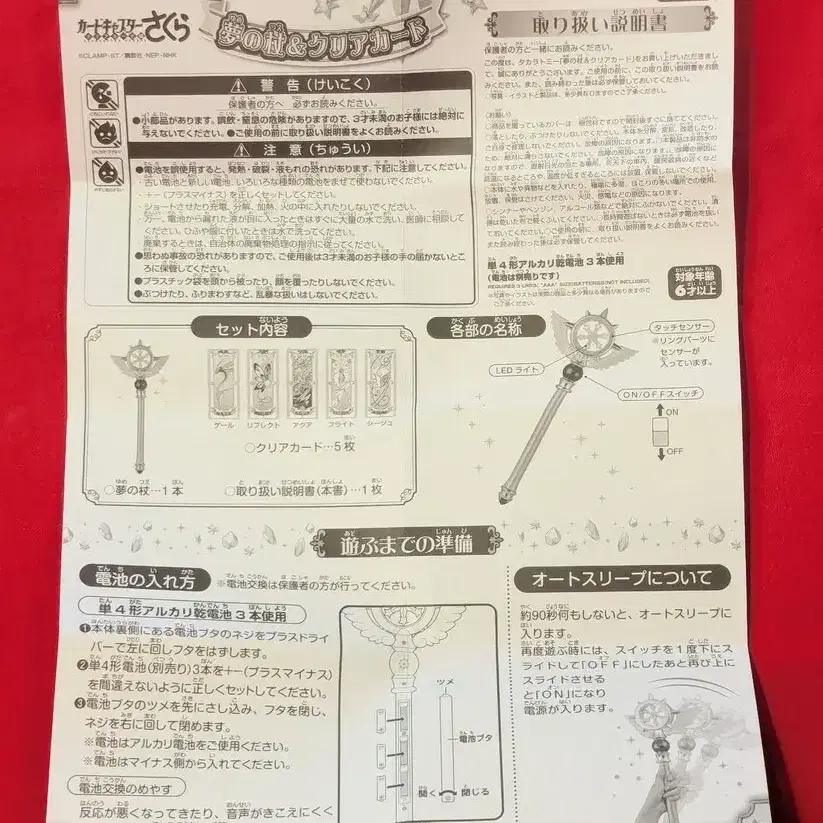 カードキャプターさくら
夢の杖&クリアカード
©CLAMP・ST/講談社・NEP・NHK
取り扱い説明書
警告(けいこく)
保護者の方へ 必ずお読みください。
●小部品があります。誤飲・窒息の危険がありますので、3才未満のお子様には絶対に
与えないでください。●ご使用の前に取り扱い説明書をよくお読みください。
注意(ちゅうい)
●電池を誤使用すると、発熱・破裂・液もれの恐れがあります。下記に注意してください。
・古い電池と新しい電池、いろいろな種類の電池をまぜて使わないでください。
・+-(プラスマイナス)を正しくセットしてください。
・ショートさせたり充電、分解、加熱、火の中に入れたりしないでください。
・万一、電池から漏れた液が目に入ったときはすぐに大量の水で洗い、医師に相談して
ください。ひふや服に付いたときは水で洗ってください。
・廃棄するときは、自治体の廃棄物処理の指示に従ってください。
●思わぬ事故の恐れがありますので、ご使用後は3才未満のお子様の手の届かないとこ
ろに保管してください。
●プラスチック袋を頭から被ったり、顔を覆ったりしないでください。
●ぶつけたり、ふりまわすなど、乱暴な扱いはしないでください。
保護者の方と一緒にお読みください。
この度は、タカラトミー「夢の杖&クリアカード」をお買い上げいただきまし
て、誠にありがとうございます。ご使用の前に、この取り扱い説明書をお読
みください。また、読み終わった後は必ず保管しておいてください。
〈お願い〉
単4形アルカリ乾電池3本使用
(電池は別売りです)
対象年齢
6才以上
セット内容
ゲール
リフレクト
アクア
フライト
シージュ
○クリアカード…5枚
○夢の杖…1本
○取り扱い説明書(本書)…1枚
各部の名称
タッチセンサー
※リングパーツに
センサーが
入っています。
LEDライト
ON/OFFスイッチ
ON
OFF
遊ぶまでの準備
電池の入れ方
※電池交換は保護者の方が行ってください。
単4形アルカリ乾電池3本使用
❶本体裏側にある電池ブタのネジをプラスドライ
バーで左に回しフタをはずします。
❷単4形電池(別売り)3本を+-(プラスマイナス)
を間違えないように正しくセットしてください。
❸電池ブタのツメを先にさし込み、フタを閉じ、
ネジを右に回して閉めます。
※電池はアルカリ電池をご使用ください。
※電池はマイナス側から入れてください。
電池交換のめやす
反応が悪くなってきたり、音声がきこえにくく
ツメ
電池ブタ
開く
閉じる
オートスリープについて
約90秒何もしないと、オートスリープに
入ります。
再度遊ぶ時には、スイッチを1度下にス
ライドして「OFF」にしたあと再び上に
スライドさせる
と「ON」になり
電源が入ります。